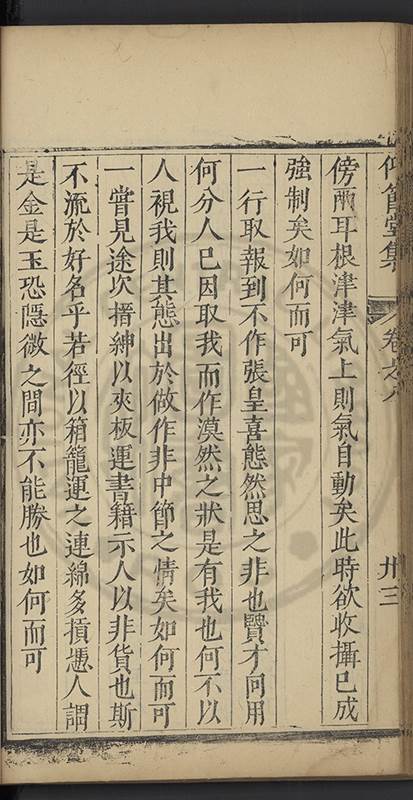 仰節堂集 卷之八 卅三
傍兩耳根津津氣上則氣自動矣此時欲收攝已成
強制矣如何而可
一行取報到不作張皇喜態然思之非也賢才同用
何分人已因取我而作漠然之狀是有我也何不以
人視我則其態出於做作非中節之情矣如何而可
一嘗見途次搢紳以夾板運書籍示人以非貨也斯
不流於好名乎若徑以箱籠運之連綿多損慿人謂
是金是玉恐隱微之間亦不能勝也如何而可